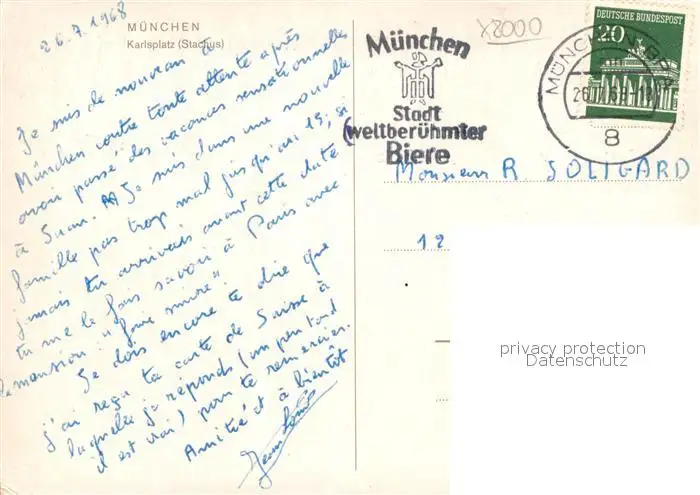 26.7.1968
MÜNCHEN
Karlsplatz (Stachus)
Je suis de nouveau à
München contre toute attente après
avoir passé des vacances sensationnelles
à . Je suis dans une nouvelle
famille pas trop mal jusqu'au 15; si
jamais tu arrivais avant cette date
tu me le fais savoir à Paris avec
la mention "faire suivre".
Je dois encore te dire que
j'ai reçu ta carte de Suisse à
laquelle je réponds (un peu tard
il est vrai) pour te remercier.
Amitié et à bientôt
X2000
München
Stadt
weltberühmter
Biere
DEUTSCHE BUNDESPOST
20
MÜNCHEN
8
Monsieur R SOLTGARD
12
privacy protection
Datenschutz